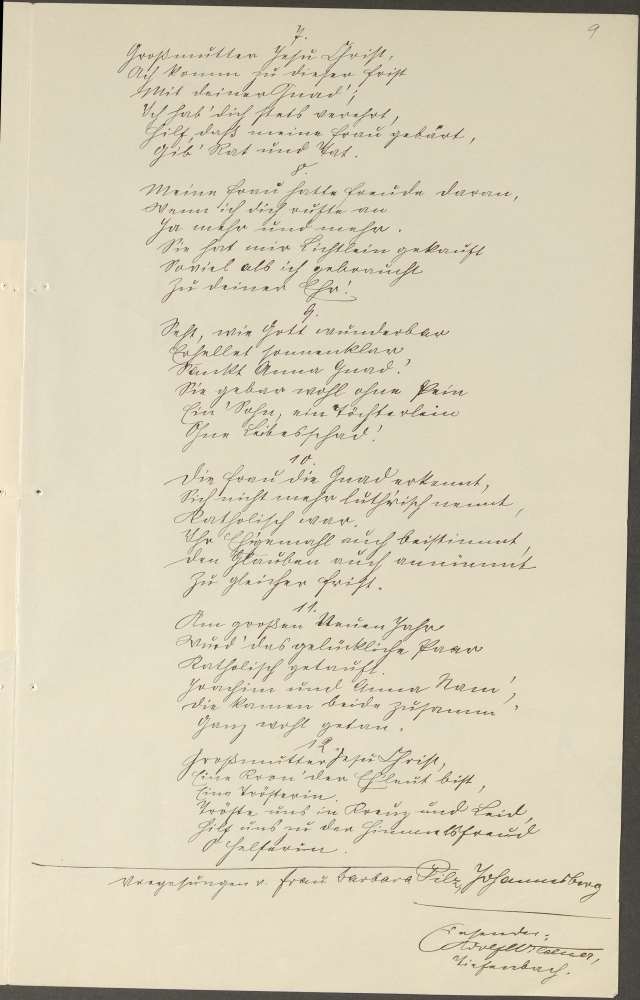 9
7.
Großmutter Jesu Christ,
Ach komm zu dieser Frist
Mit deiner Gnad';
Ich hab' dich stets verehrt,
Hilf, daß meine Frau gebärt,
Gib' Rat und Tat.
8.
Meine Frau hatte Freude daran,
Wenn ich dich rufte an
Ja mehr und mehr.
Sie hat mir Lichtlein gekauft
Soviel als ich gebraucht
Zu deiner Ehr!
9.
Seht, wie Gott wunderbar
Erhellet sonnenklar
Sankt Anna Gnad!
Sie gebar wohl ohne Pein
Ein' Sohn, ein Töchterlein
Ohne Leibesschad!
10.
Die Frau die Gnad erkennt,
Sich nicht mehr luth'risch nennt,
Katholisch war.
Ihr Ehgemahl auch beistimmt,
Den Glauben auch annimmt
Zu gleicher Frist.
11.
Am großen Neuen Jahr
Wurd' das gelückliche Paar
Katholisch getauft.
Joachim und Anna Nam',
Die kamen beide zusamm'
Ganz wohl getan.
12.
Großmutter Jesu Christ,
Eine Kron' der Ehleut bist,
Eine Trösterin.
Tröste uns in Kreuz und Leid,
Hilf uns zu der Himmelsfreud
O Helferin.
Vorgesungen v. Frau Barbara Pilz, Johannesberg
Einsender:
Adolf
Tiefenbach.